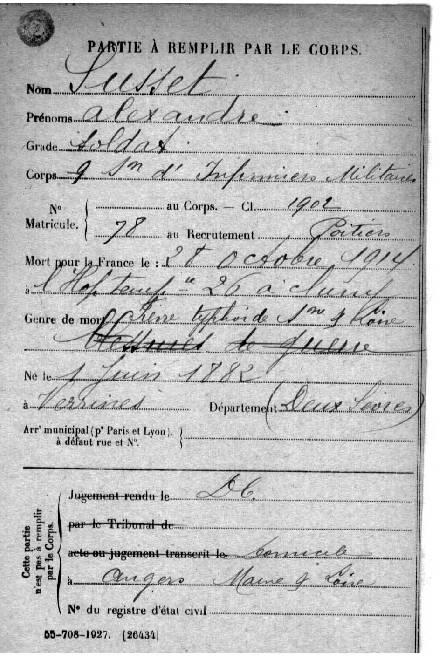 PARTIE À REMPLIR PAR LE CORPS.
Nom Susset
Prénoms alexandre
Grade Soldat
Corps 9 Son d' Infirmiers Militaires
No au Corps. — Cl. 1902
Matricule. 78 au Recrutement Poitiers
Mort pour la France le : 28 octobre 1914
à l'Hop temp re 26 à
Genre de mort Fièvre typhoïde Mne & Loire
Blessures de guerre
Né le 1 Juin 1882
à Verrines Département (Deux Sèvres)
Arrt municipal (pr Paris et Lyon),
à défaut rue et No.
Cette partie
n'est pas à remplir
par le Corps.
Jugement rendu le D.C.
par le Tribunal de
acte ou jugement transcrit le domicile
à angers Maine & Loire
No du registre d'état civil
55-708-1927. [26434]